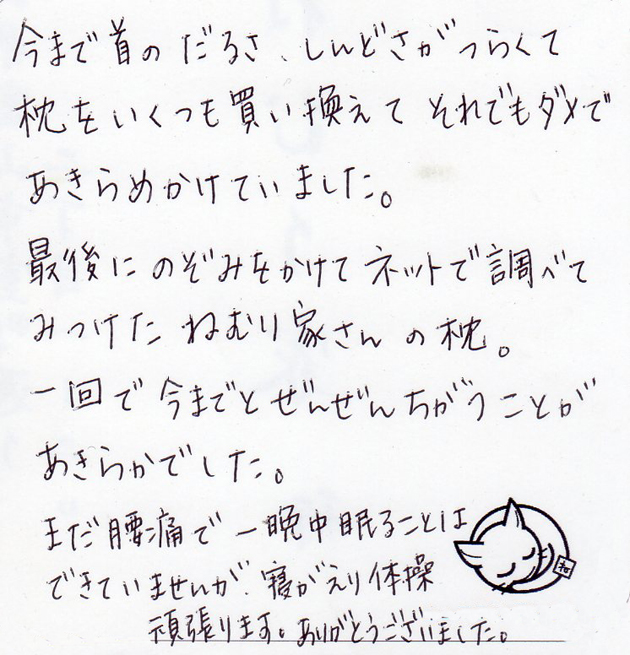 今まで首の だるさ、しんどさがつらくて
枕をいくつも買い換えて それでもダメで
あきらめかけていました。
最後に のぞみをかけて ネットで調べて
みつけた ねむり家さん の 枕。
一回で 今までと ぜんぜんちがうことが
あきらかでした。
まだ腰痛で 一晩中眠ることは
できていませんが、寝がえり体操
頑張ります。ありがとうございました。